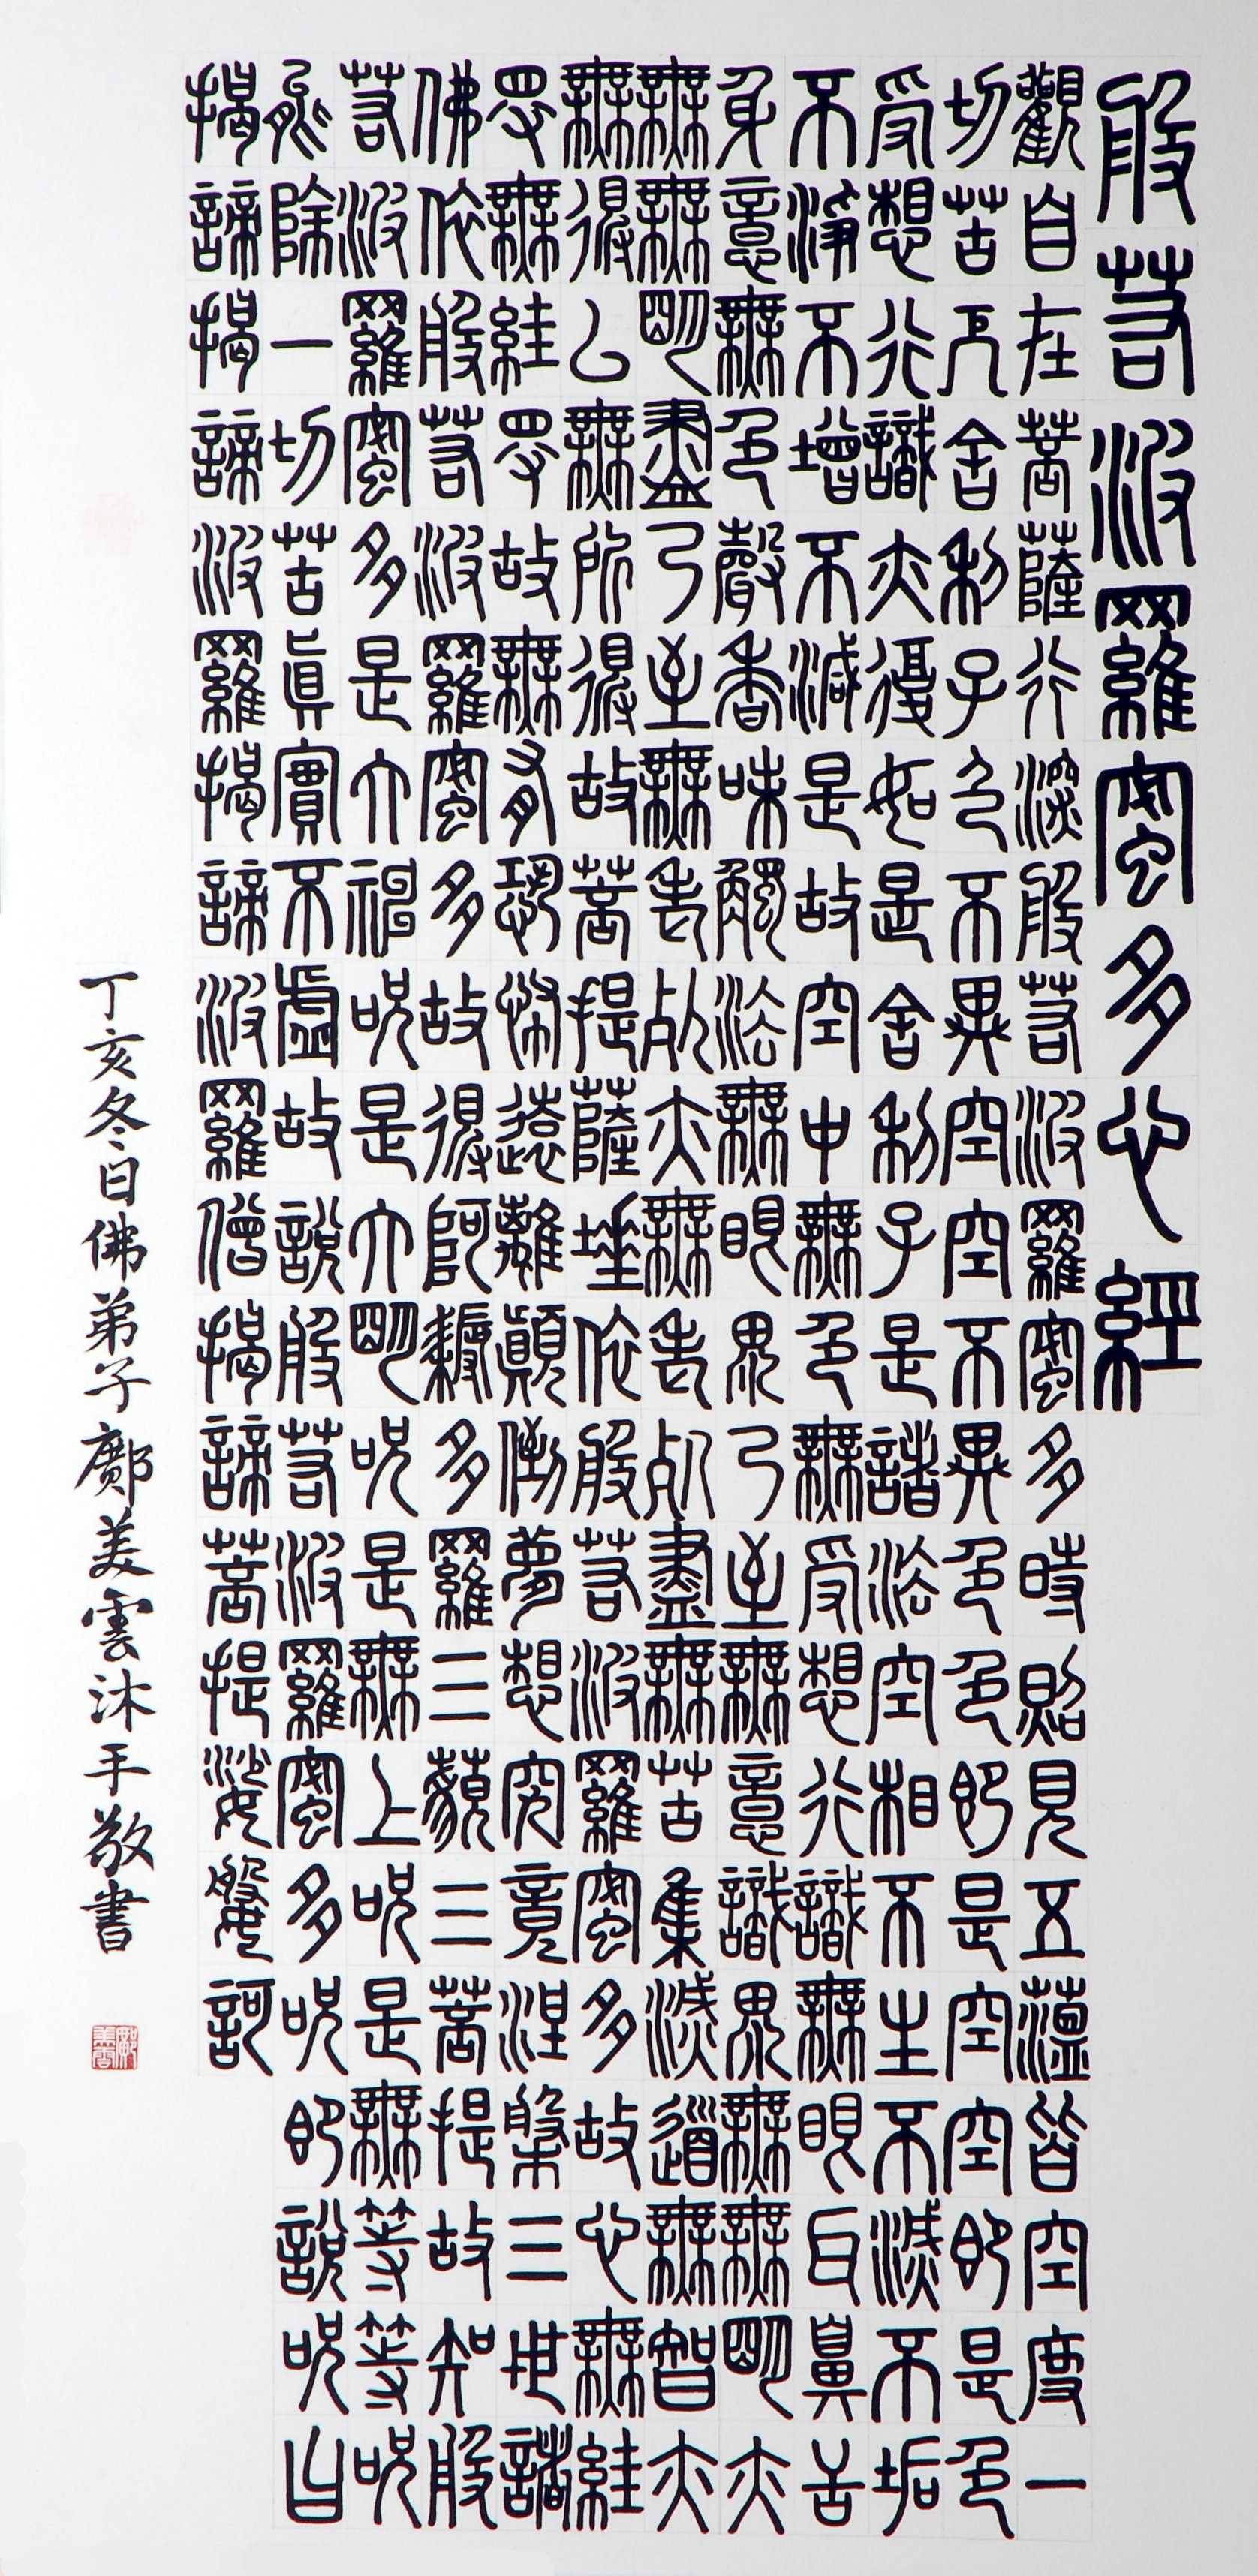 般若波羅蜜多心經
觀自在菩薩行深般若波羅蜜多時照見五蘊皆空度一
切苦厄舍利子色不異空空不異色色即是空空即是色
受想行識亦復如是舍利子是諸法空相不生不滅不垢
不淨不增不減是故空中無色無受想行識無眼耳鼻舌
身意無色聲香味觸法無眼界乃至無意識界無無明亦
無無明盡乃至無老死亦無老死盡無苦集滅道無智亦
無得以無所得故菩提薩埵依般若波羅蜜多故心無罣
礙無罣礙故無有恐怖遠離顛倒夢想究竟涅槃三世諸
佛依般若波羅蜜多故得阿耨多羅三藐三菩提故知般
若波羅蜜多是大神咒是大明咒是無上咒是無等等咒
能除一切苦真實不虛故說般若波羅蜜多咒即說咒曰
揭諦揭諦波羅揭諦波羅僧揭諦菩提娑婆訶
丁亥冬日佛弟子鄺美雲沐手敬書
鄺美雲